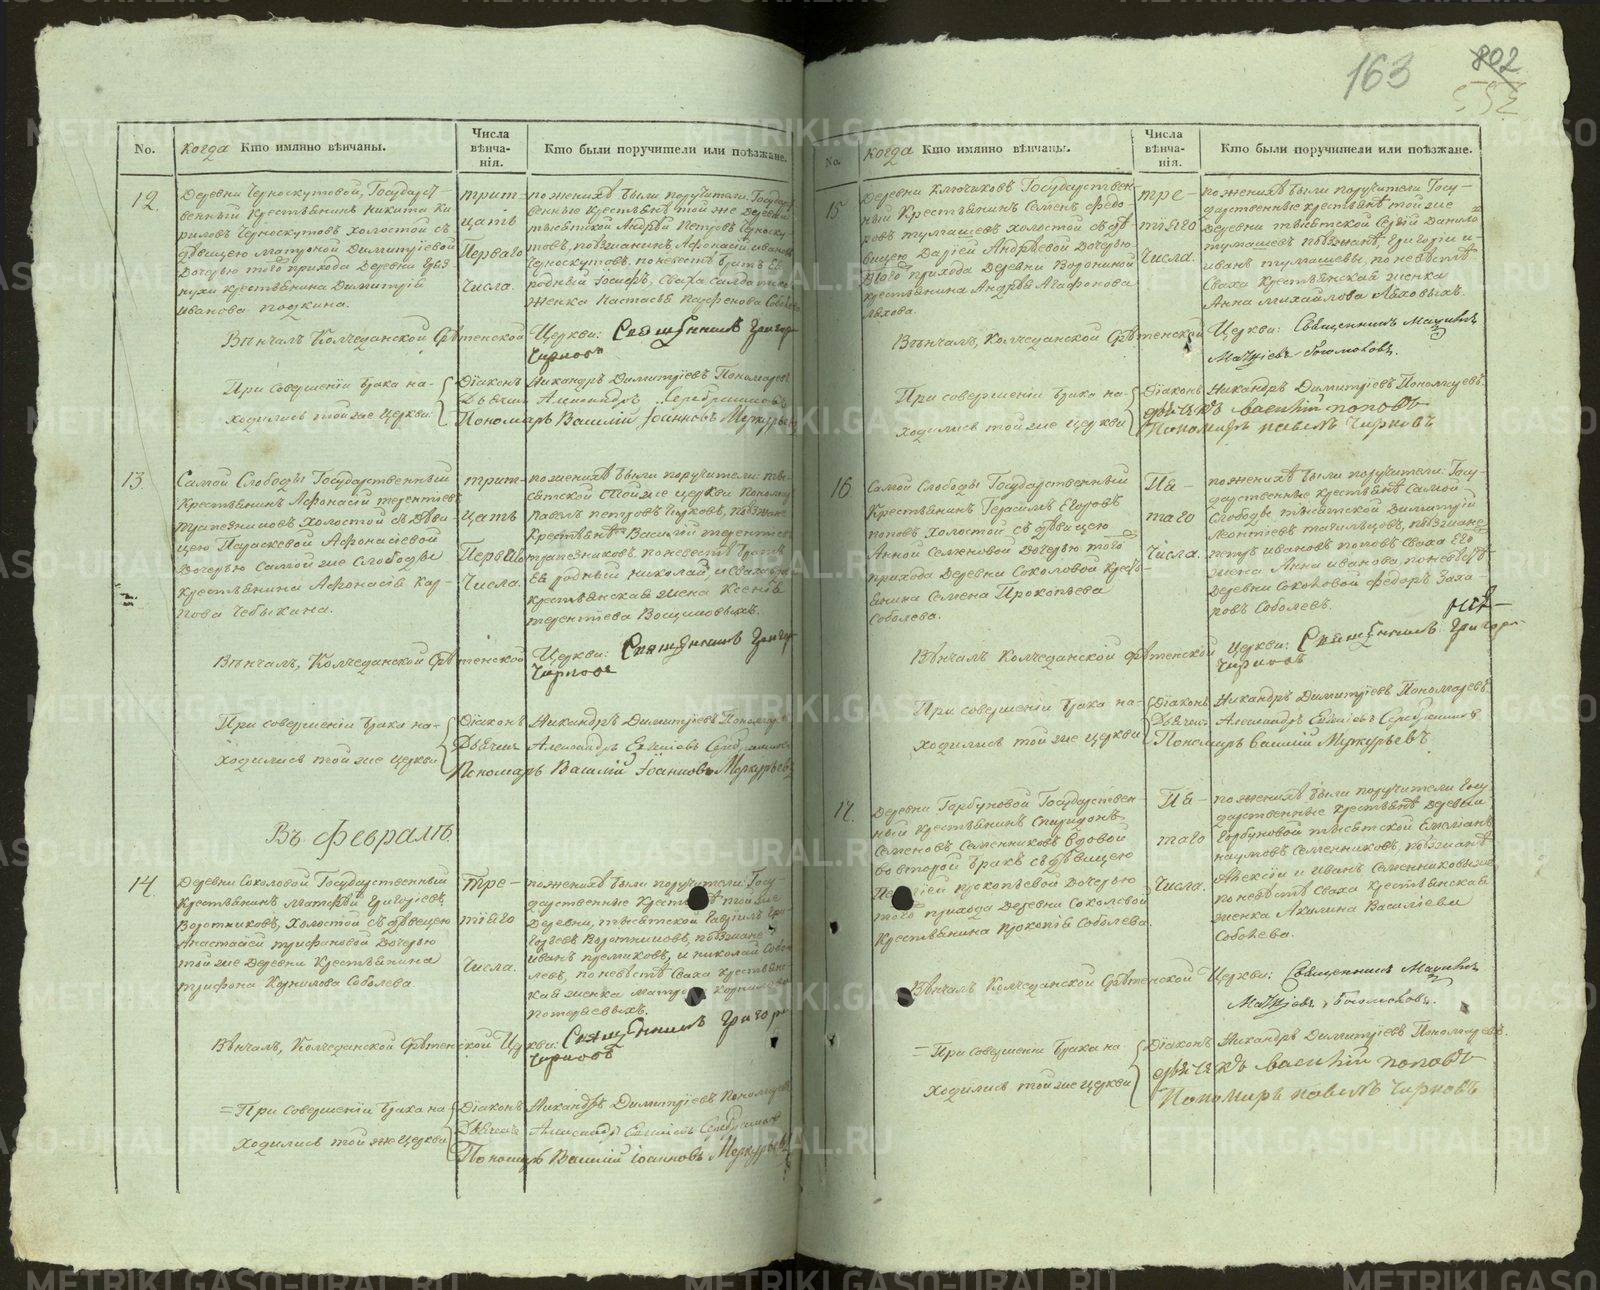 163
802
No.
когда Кто имянно вѣнчаны.
Числа
вѣнча-
нія.
Кто были поручители или поѣзжане.
12.
Деревни Черноскутовой, Государст-
венный Крестьянинъ Никита Ки-
риловъ Черноскутовъ холостой съ
дѣвицею Матроной Димитріевой
Дочерью того прихода Деревни
крестьянина Димитрія
Иванова
трит-
цать
Перваго
Числа.
по женихѣ были поручители: Государст-
венные Крестьяне той же Деревни
тысятской Андрей Петровъ Черноску-
товъ, поѣзжанинъ Афонасій Ивановъ
Черноскутовъ, по невестѣ братъ Ея
родный Іосифъ, Сваха Салдатская
женка Настасья
Вѣнчалъ Колчеданской Срѣтенской Церкви: Священникъ Григорій
Чирковъ
При совершеніи брака на-
ходились той же Церкви:
Діаконъ Никандръ Димитріевъ Пономаревъ
Дьячекъ Александръ Серебрянниковъ
Пономарь Василій Іоанновъ Меркурьевъ
13.
Самой Слободы Государственный
Крестьянинъ Афонасій Терентьевъ
Трапезниковъ холостой съ Дѣви-
цею Параскевой Афонасіевой
Дочерью Самой же Слободы
Крестьянина Афонасія Кар-
пова Чебыкина.
трит-
цать
Перваго
Числа.
по женихѣ были поручители: ты-
сятской той же церкви Пономарь
Павелъ Петровъ Чирковъ, поѣзжане
Крестьянинъ Василій Терентьевъ
Трапезниковъ, по невестѣ братъ
Ея родный Николай, и Сваха
крестьянская жена Ксенія
Терентіева
Вѣнчалъ, Колчеданской Срѣтенской Церкви: Священникъ Григорій
Чирковъ
При совершеніи брака на-
ходились той же Церкви
Діаконъ Никандръ Димитріевъ Пономаревъ
Дьячекъ Александръ Серебрянниковъ
Пономарь Василій Іоанновъ Меркурьевъ
Въ Февралѣ.
14.
Деревни Соколовой Государственный
Крестьянинъ Матвѣй Григорьевъ
Воротниковъ, холостой съ дѣвицею
Анастасіей Трифоновой Дочерью
той же Деревни Крестьянина
Трифона Корнилова Соболева
Тре-
тіяго
Числа.
по женихѣ были поручители: Госу-
дарственные Крестьяне той же
Деревни, тысятской Гаврилъ Гри-
горьевъ Воротниковъ, поѣзжане
Иванъ и Николай Собо-
левъ, по невѣстѣ Сваха крестьян-
ская женка Матрона Корнилова
Вѣнчалъ, Колчеданской Срѣтенской Церкви: Священникъ Григорій
Чирковъ
=При совершеніи брака на
ходились той же церкви
Діаконъ Никандръ Димитріевъ Пономаревъ
Дьячекъ Александръ Серебрянниковъ
Пономарь Василій Іоанновъ Меркурьевъ
No.
когда Кто имянно вѣнчаны.
Числа
вѣнча-
нія.
Кто были поручители или поѣзжане.
15
Деревни Ключиковъ Государствен
ный Крестьянинъ Семенъ Федо
ровъ Тумашевъ холостой съ дѣ
вицею Даріей Андрѣевой Дочерью
того прихода Деревни Ворониной
крестьянина Андрѣя Агафонова
Ляхова.
тре-
тіяго
Числа.
по женихѣ были поручители Госу-
дарственные крестьяне той же
Деревни тысятской Сергій Данило
Тумашевъ поѣзжане, Григорій и
Иванъ Тумашевы, по невѣстѣ
Сваха Крестьянская женка
Анна Михайлова Ляховыхъ.
Вѣнчалъ, Колчеданской Срѣтенской Церкви: Священникъ
Богомоловъ.
При совершеніи брака на-
ходились той же церкви
Діаконъ Никандръ Димитріевъ Пономаревъ.
дьячекъ василій поповъ
Пономарь павелъ чирковъ
16
Самой Слободы Государственный
Крестьянинъ Герасимъ Егоровъ
поповъ холостой съ дѣвицею
Анной Семеновой Дочерью того
прихода Деревни Соколовой Кресть-
янина Семена Прокопьева
Соболева.
Пя-
таго
Числа.
по женихѣ были поручители: Госу-
дарственные Крестьяне Самой
Слободы тысятской Димитрій
Леонтіевъ поѣзжане
Петръ Ивановъ поповъ Сваха Его
жена Анна Иванова, по невѣстѣ
Деревни Соколовой Федоръ Заха-
ровъ Соболевъ.
Вѣнчалъ Колчеданскій Срѣтенской Церкви: Священникъ Григорій
Чирковъ
При совершеніи брака на-
ходились той же церкви
Діаконъ Никандръ Димитріевъ Пономаревъ.
Дьячекъ Александръ Серебрянниковъ
Пономарь Василій Меркурьевъ
17.
Деревни Горбуновой Государствен-
ный крестьянинъ Спиридонъ
Семеновъ Семенниковъ вдовой
во второй бракъ съ дѣвицею
прокопьевой Дочерью
того прихода Деревни Соколовой
Крестьянина Прокопія Соболева.
Пя-
таго
Числа.
по женихѣ были поручители Госу
дарственные крестьяне Деревни
Горбуновой тысятской Емельянъ
Наумовъ Семенниковъ, поѣзжане
Алексій и Иванъ Семенниковы же,
по невѣстѣ Сваха Крестьянская
женка Акилина Василіева
Соболева.
Вѣнчалъ Колчеданской Срѣтенской Церкви: Священникъ
Богомоловъ.
=При совершеніи брака на
ходились той же церкви
Діаконъ Никандръ Димитріевъ Пономаревъ.
дьячекъ василій поповъ
Пономарь павелъ чирковъ
METRIKI.GASO-URAL.RU